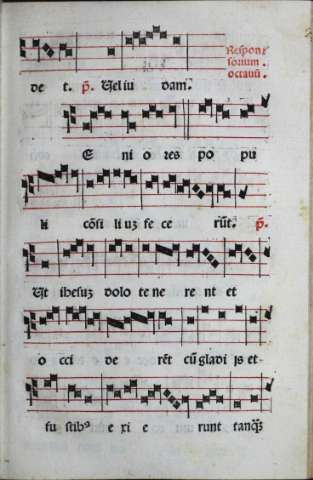 Respon=
sorium.
octauū.
de t. p̄. Uel iu dam.
E ni o res po pu
li cōsi li uȝ fe ce rūt. p̄.
Ut ihesuȝ dolo te ne re nt et
o cci de rēt cū gladi js et
fu stibꝰ e xi e runt tanqȝ